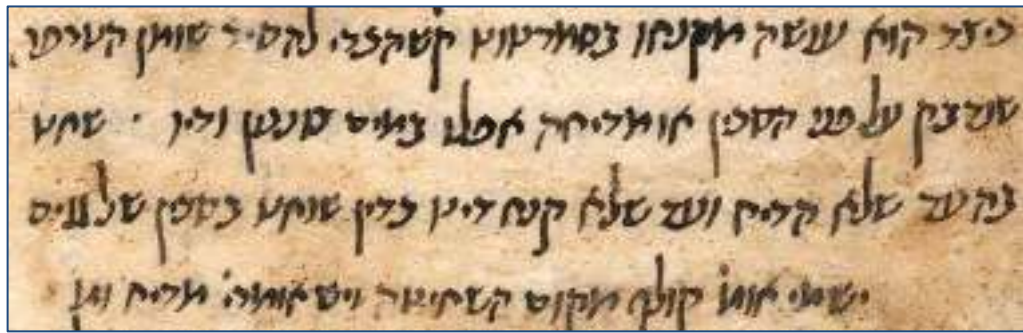 כיצד הוא עושה מקנחו בסמרטוט קשה כדי להסיר שומן הטרפה
שנדבק על פני הסכין או מדיחה אפלו במים צונגין ודיו . שחט
בה עד שלא הדיח ועד שלא קנח דינו כדין שוחט בסכין של גוים
יש מי אומ' קולף מקום השחיטה ויש אומרי' מדיח